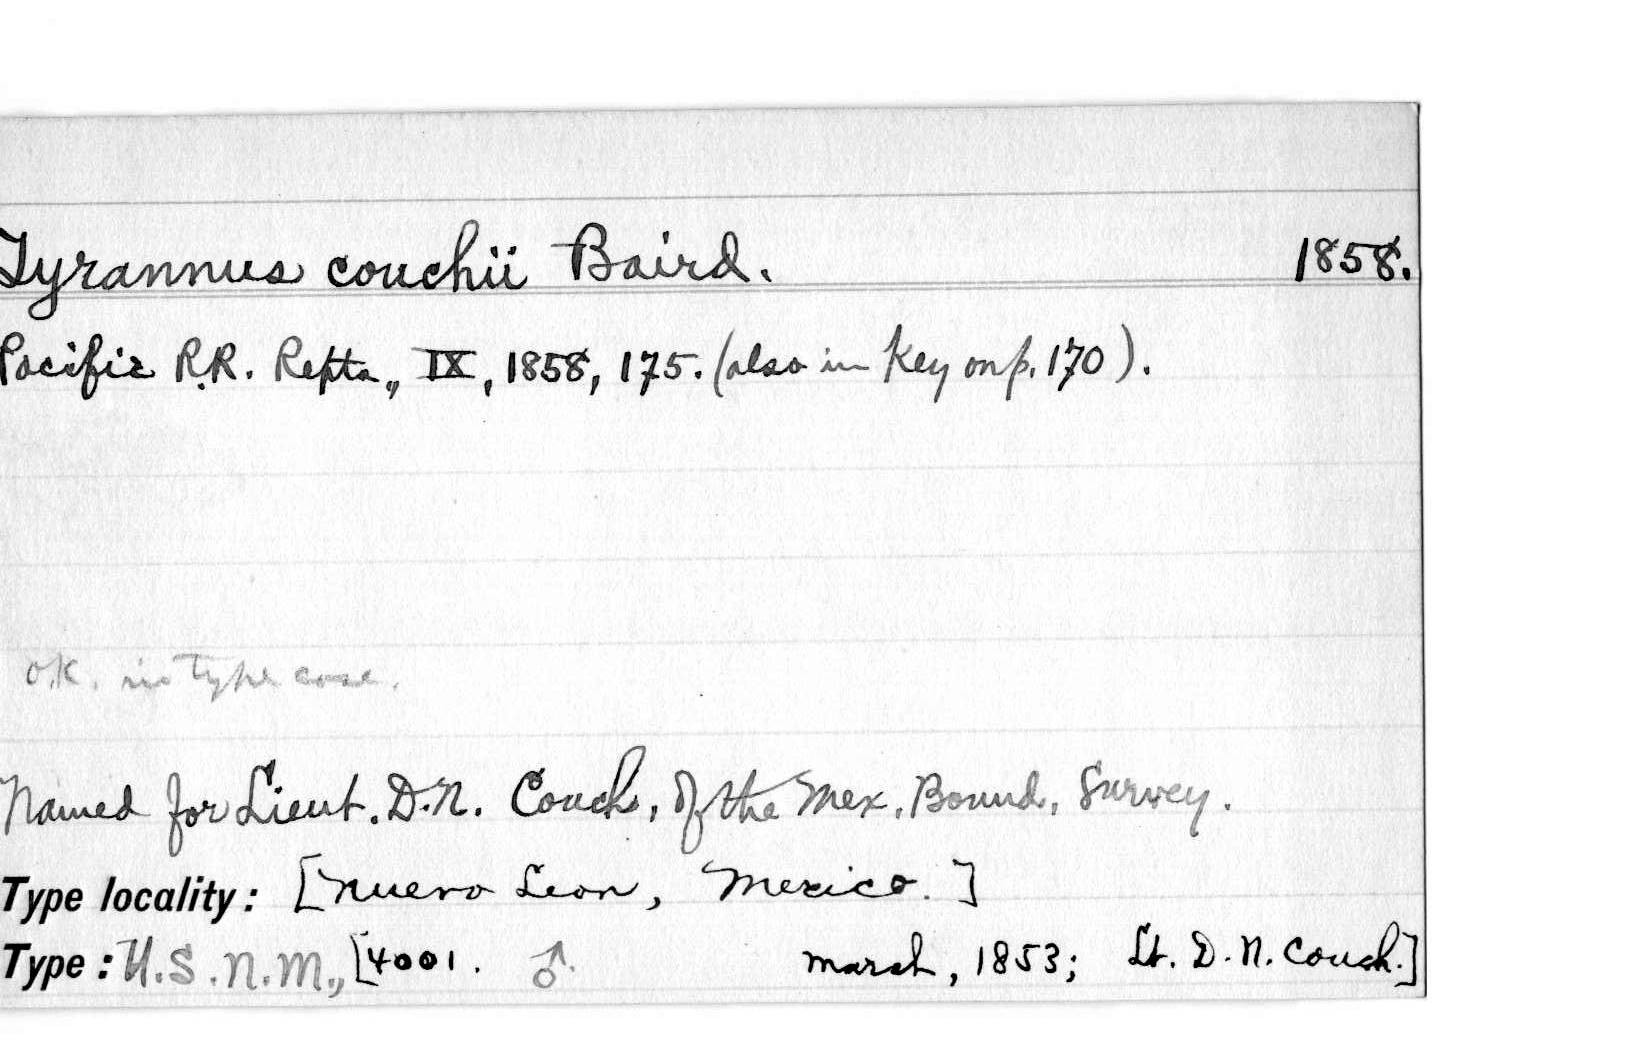 Tyrannus couchii Baird. 1858.
Pacific R.R. Repts., IX, 1858, 175. (also in Key on p. 170).
O.K. in type case.
Named for Lieut. D.N. Couch, of the Mex. Bound. Survey.
Type locality: [Nuevo Leon, Mexico.]
Type: U.S.N.M., [4001. ♂. March, 1853; Lt. D. N. Couch.]